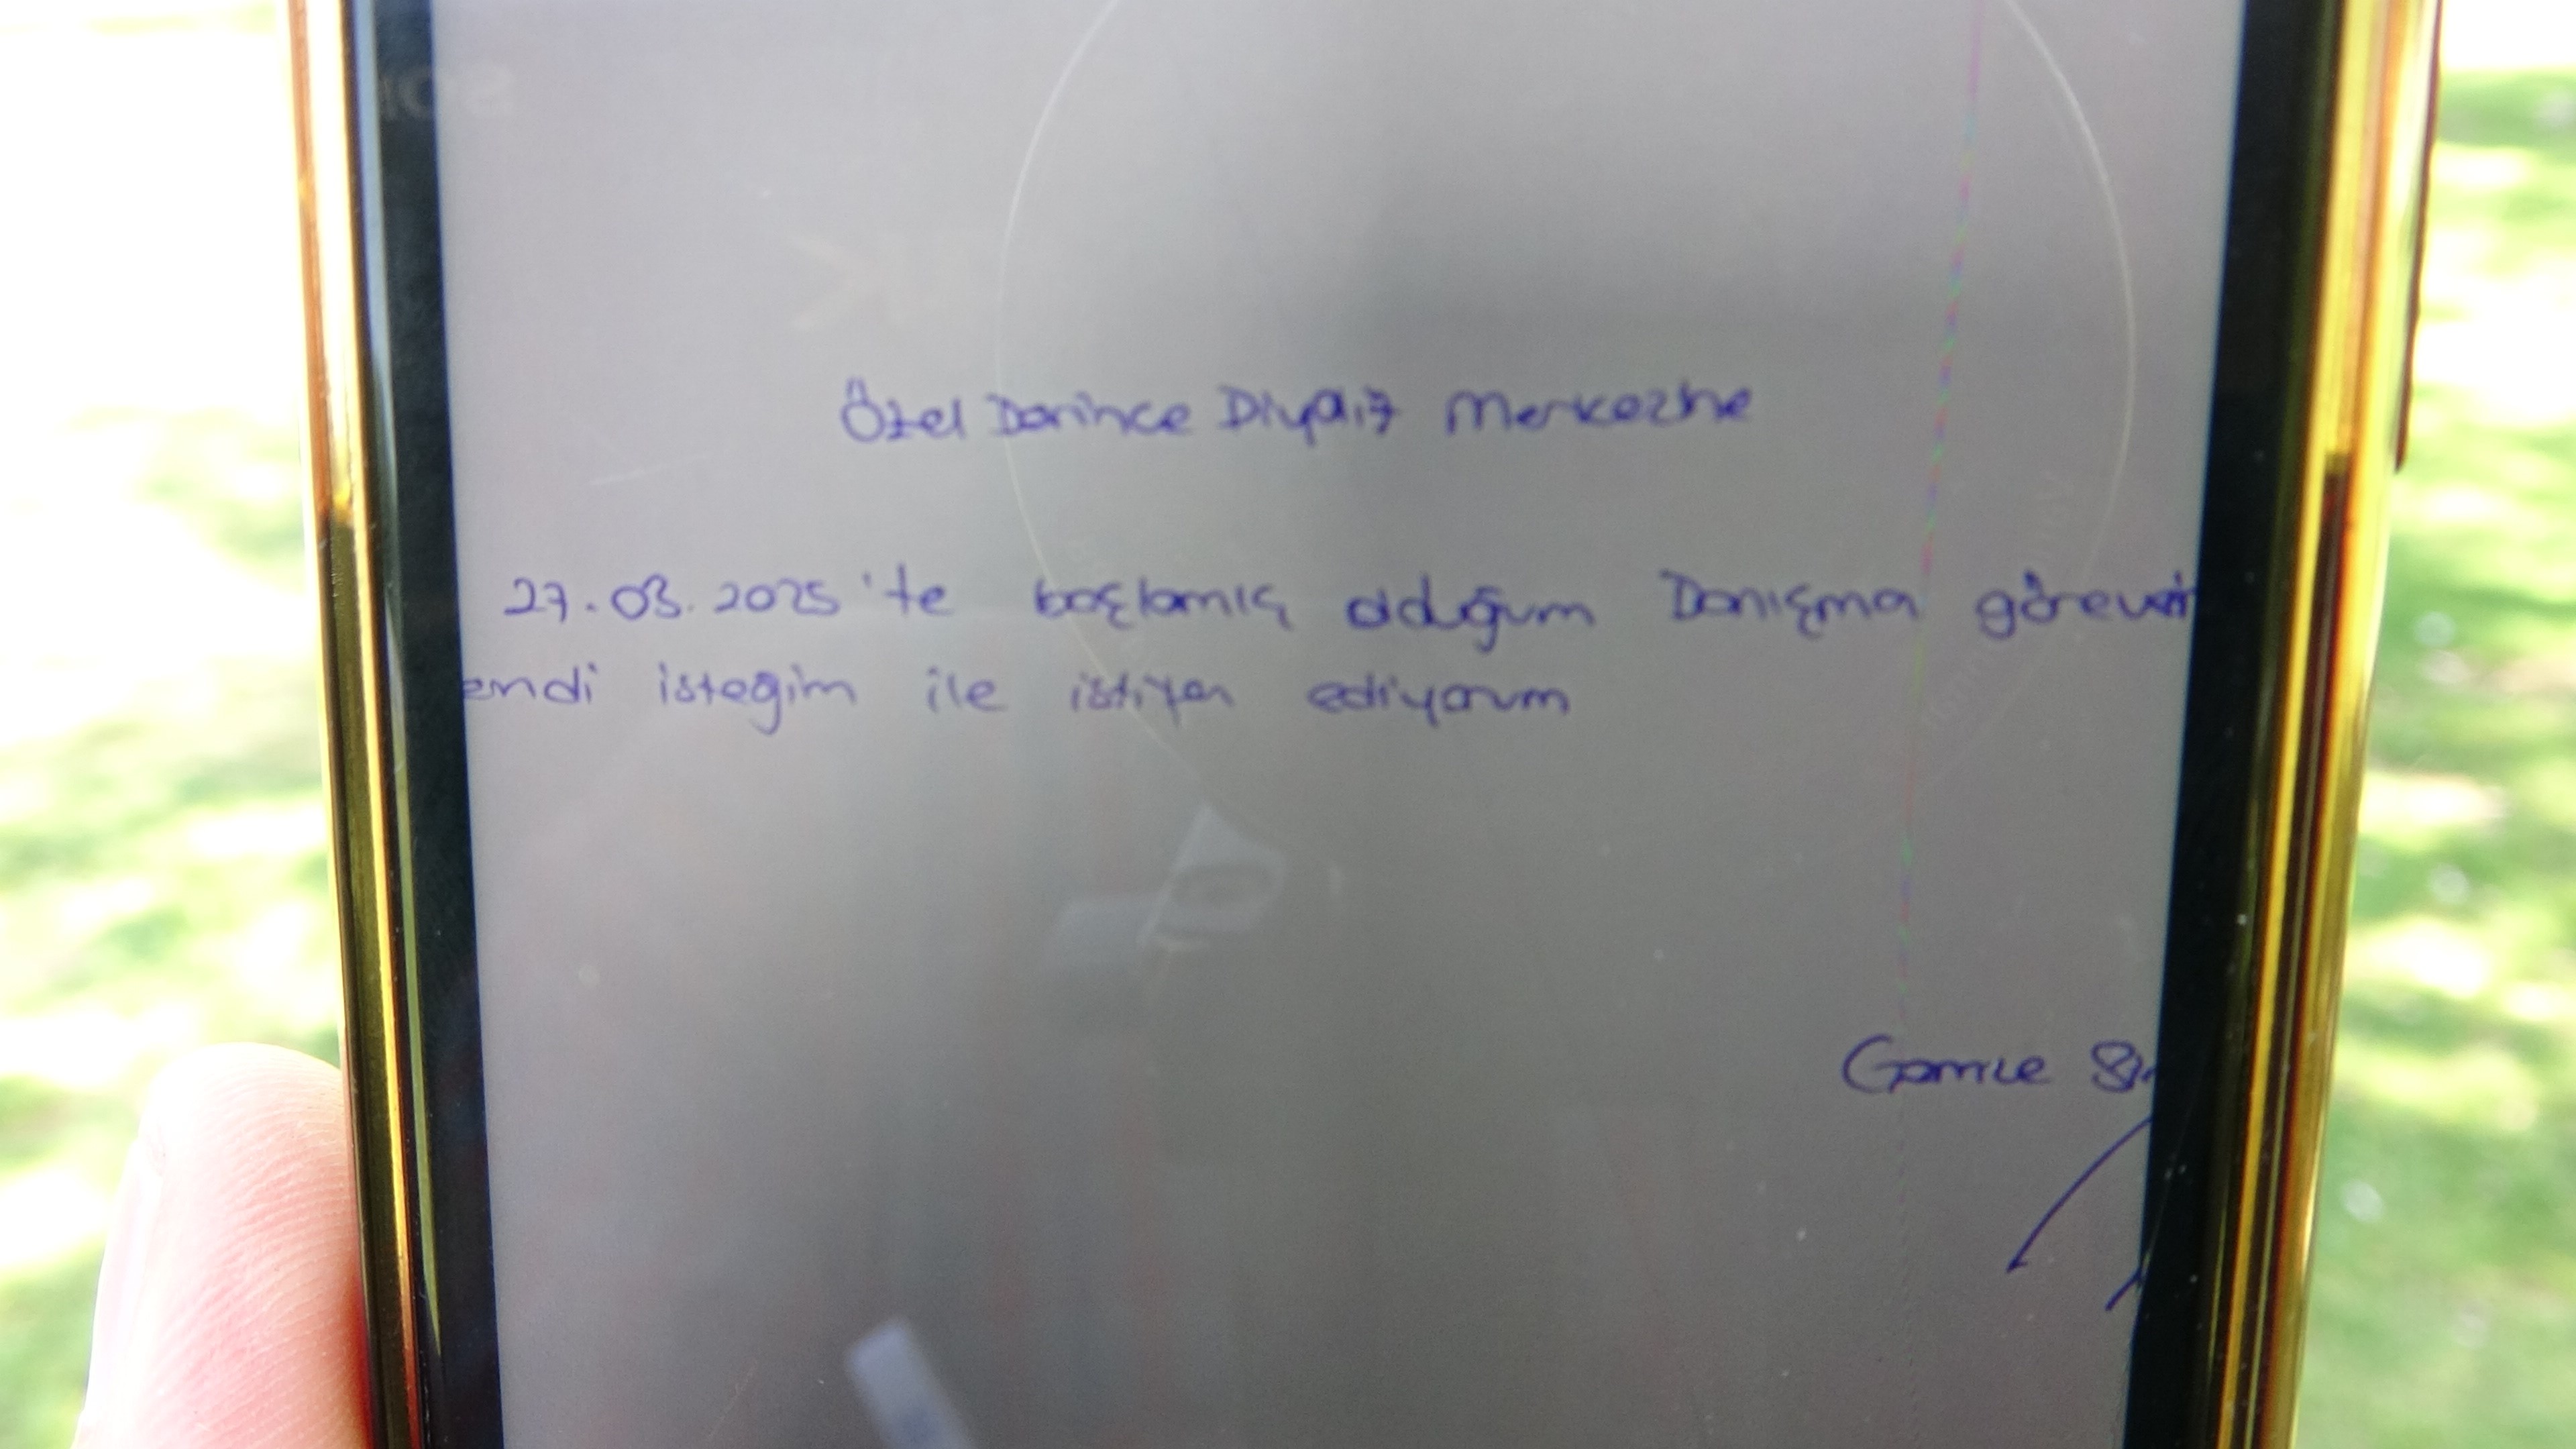 Özel Derince Diyaliz Merkezine
27.03.2025'te başlamış olduğum Danışma görevi
endi isteğim ile istifa ediyorum
Gamze